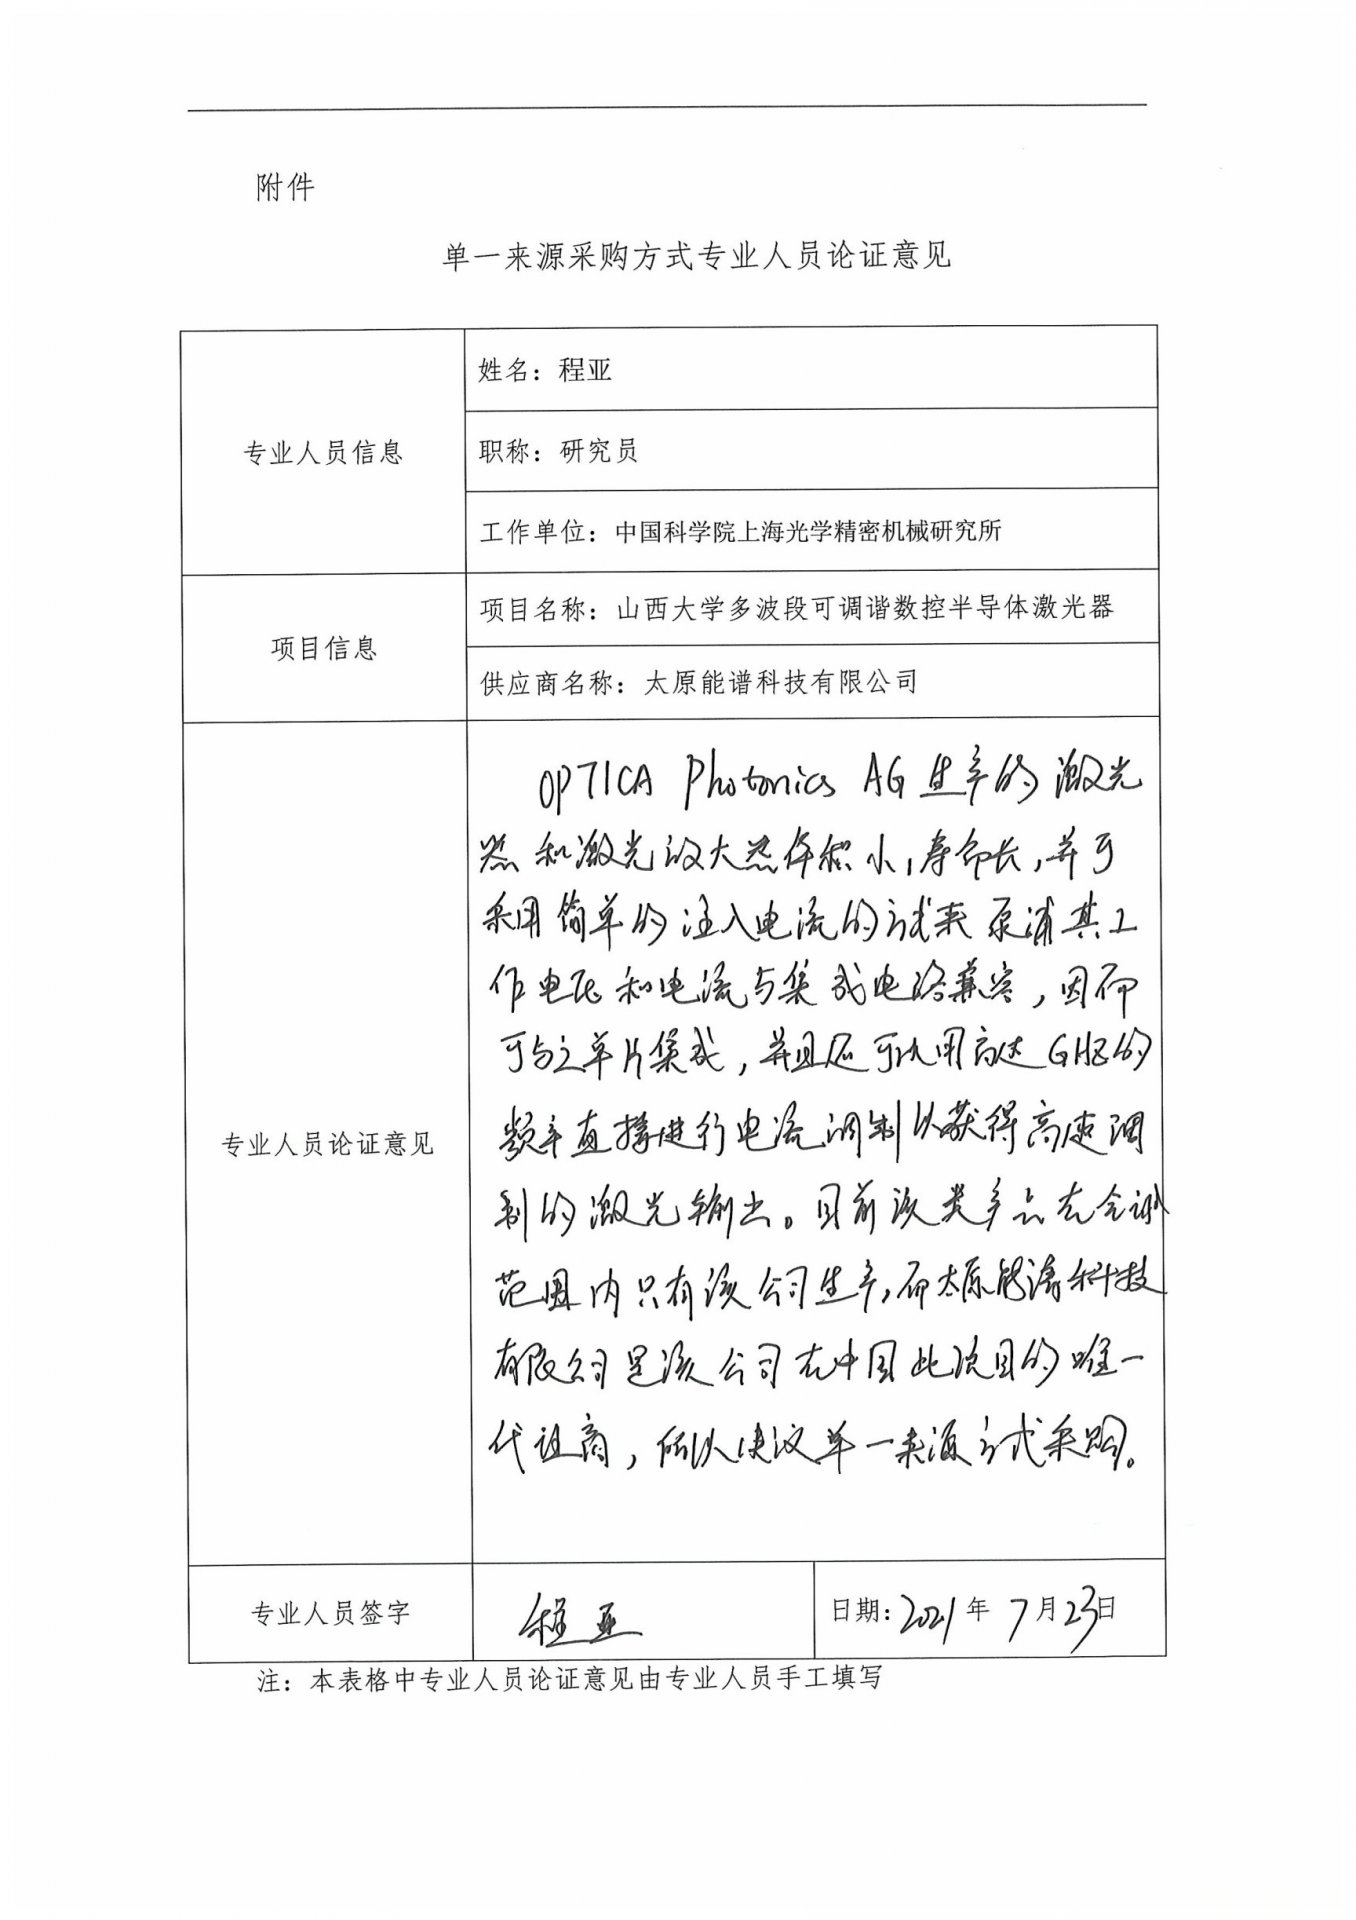 附件
单一来源采购方式专业人员论证意见
专业人员信息
姓名：程亚
职称：研究员
工作单位：中国科学院上海光学精密机械研究所
项目信息
项目名称：山西大学多波段可调谐数控半导体激光器
供应商名称：太原能谱科技有限公司
专业人员论证意见
OPTICA Photonics AG 生产的激光
器和激光放大器体积小，寿命长，并可
采用简单的注入电流的方式来泵浦其工
作电压和电流与集成电路兼容，因而
可与之单片集成，并且还可以用高达GHZ的
频率直接进行电流调制以获得高速调
制的激光输出。目前该类产品在全球
范围内只有该公司生产，而太原能谱科技
有限公司是该公司在中国此项目的唯一
代理商，所以建议单一来源方式采购。
专业人员签字
程亚
日期：2021年7月23日
注：本表格中专业人员论证意见由专业人员手工填写